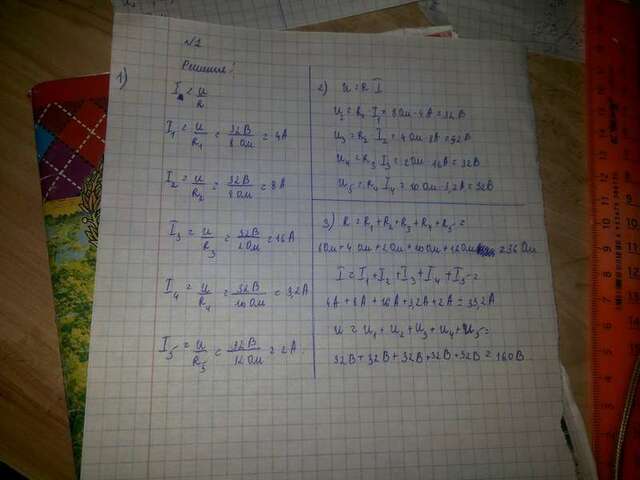 N1
1) Решение:
I = U/R
I₁ = U/R₁ = 32В/8 Ом = 4А
I₂ = U/R₂ = 32В/4 Ом = 8А
I₃ = U/R₃ = 32В/2 Ом = 16А
I₄ = U/R₄ = 32В/10 Ом = 3,2А
I₅ = U/R₅ = 32В/12 Ом = 2А
2) U = R I
U₂ = R₁ I₁ = 8 Ом · 4А = 32В
U₃ = R₂ I₂ = 4 Ом · 8А = 32В
U₄ = R₃ I₃ = 2 Ом · 16А = 32В
U₅ = R₄ I₄ = 10 Ом · 3,2А = 32В
3) R = R₁ + R₂ + R₃ + R₄ + R₅ =
8 Ом + 4 Ом + 2 Ом + 10 Ом + 12 Ом = 36 Ом
I = I₁ + I₂ + I₃ + I₄ + I₅ =
4А + 8А + 16А + 3,2А + 2А = 33,2А
U = U₁ + U₂ + U₃ + U₄ + U₅ =
32В + 32В + 32В + 32В + 32В = 160В